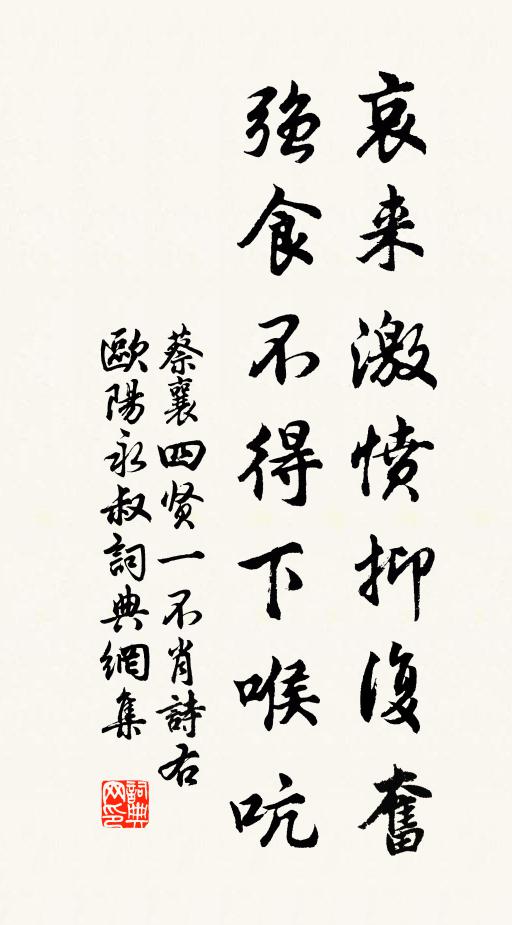 哀来激愤抑復奮
強食不得下喉吭
蔡襄四贤一不肖詩右
歐陽永叔詞典網集
詞典网印